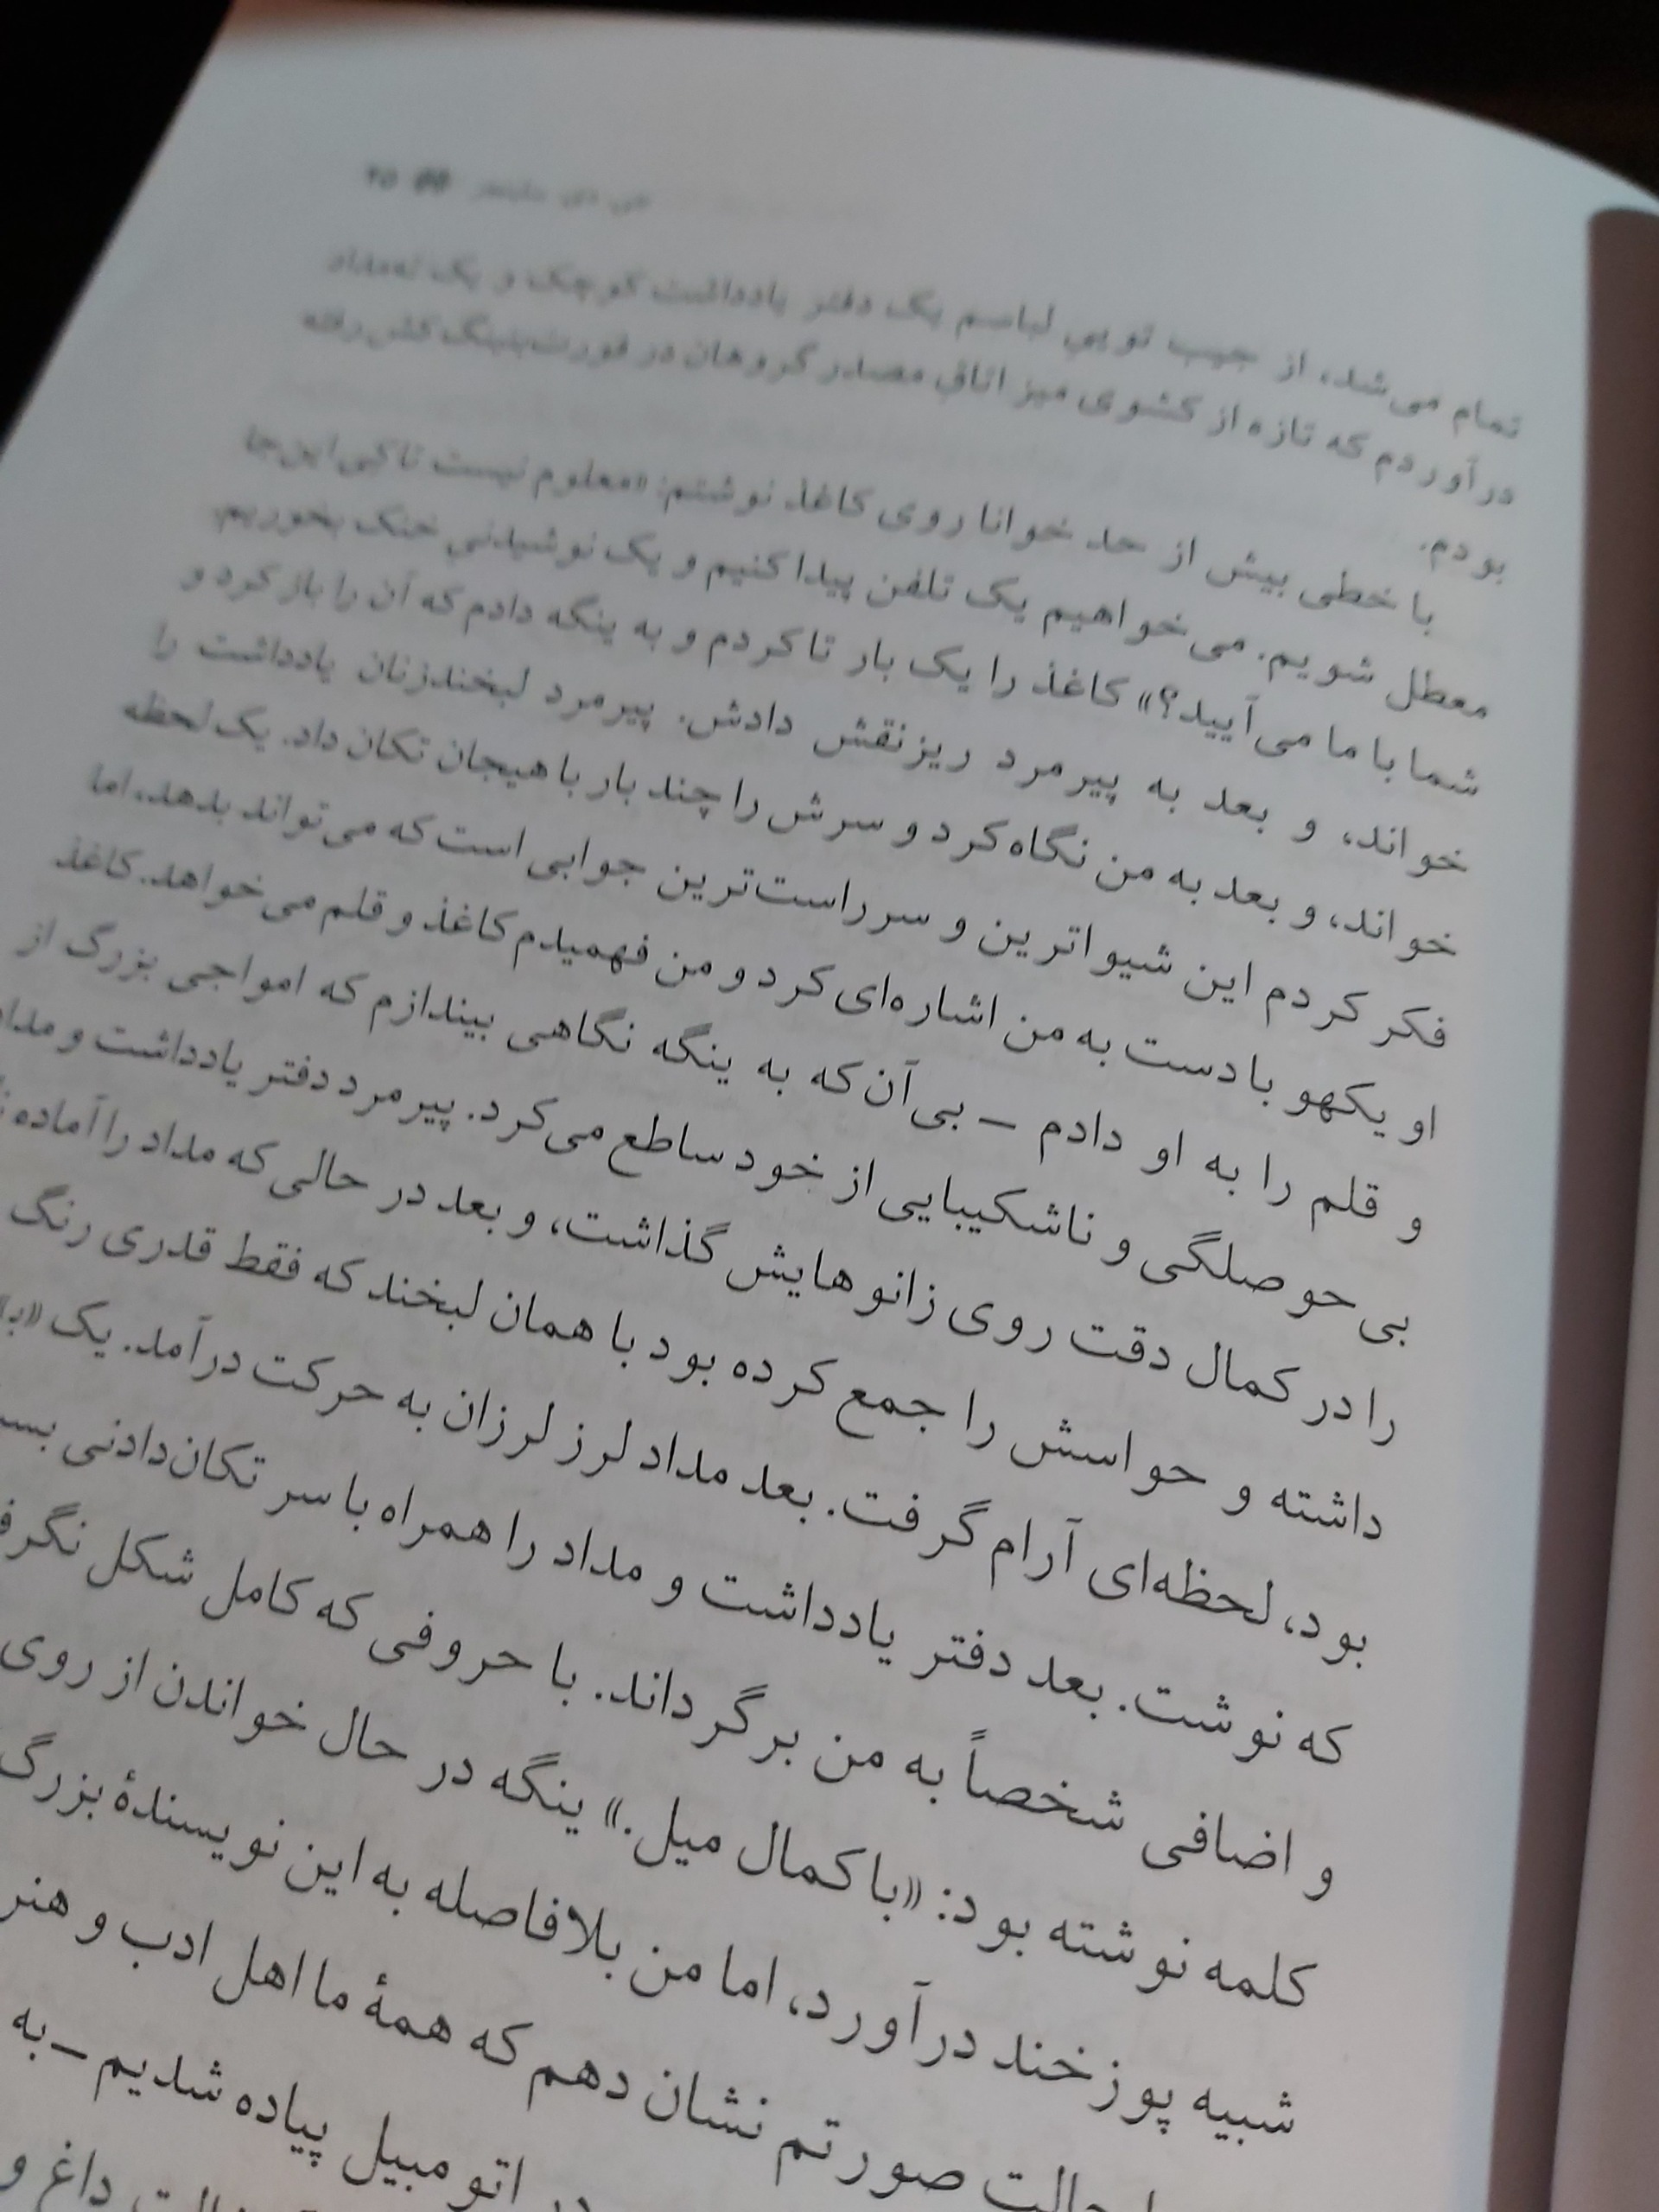 جی. دی. سلینجر
تمام می‌شد، از جیب تویی لباسم یک دفتر یادداشت کوچک و یک ته‌مداد
درآوردم که تازه از کشوی میز اتاق مصدر گروهان در فورت‌بنینگ کش رفته
بودم.
با خطی بیش از حد خوانا روی کاغذ نوشتم: «معلوم نیست تا کی این‌جا
معطل شویم. می‌خواهیم یک تلفن پیدا کنیم و یک نوشیدنی خنک بخوریم.
شما با ما می‌آیید؟» کاغذ را یک بار تا کردم و به ینگه دادم که آن را باز کرد و
خواند، و بعد به پیرمرد ریزنقش دادش. پیرمرد لبخندزنان یادداشت را
خواند، و بعد به من نگاه کرد و سرش را چند بار با هیجان تکان داد. یک لحظه
فکر کردم این شیواترین و سرراست‌ترین جوابی است که می‌تواند بدهد، اما
او یکهو با دست به من اشاره‌ای کرد و من فهمیدم کاغذ و قلم می‌خواهد. کاغذ
و قلم را به او دادم — بی‌آن‌که به ینگه نگاهی بیندازم که امواجی بزرگ از
بی‌حوصلگی و ناشکیبایی از خود ساطع می‌کرد. پیرمرد دفتر یادداشت و مداد
را در کمال دقت روی زانوهایش گذاشت، و بعد در حالی که مداد را آماده
داشته و حواسش را جمع کرده بود با همان لبخند که فقط قدری رنگ
بود، لحظه‌ای آرام گرفت. بعد مداد لرز لرزان به حرکت درآمد. یک
که نوشت. بعد دفتر یادداشت و مداد را همراه با سر تکان‌دادنی
و اضافی شخصاً به من برگرداند. با حروفی که کامل شکل
کلمه نوشته بود: «با کمال میل.» ینگه در حال خواندن از روی
شبیه پوزخند درآورد، اما من بلافاصله به این نویسندهٔ بزرگ
حالت صورتم نشان دهم که همهٔ ما اهل ادب و هنر
اتومبیل پیاده شدیم — به
داغ و